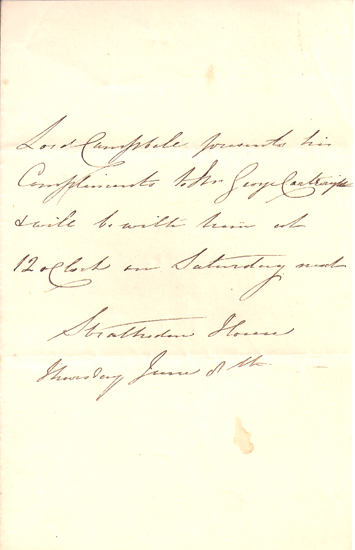 Lord Campbell presents his
Compliments to Mr George Cartwright
& will be with him at
12 oClock on Saturday next
Stratheden House
Thursday June 8th